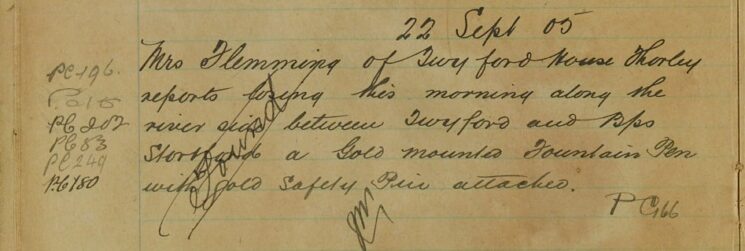 22 Sept 05
PC 196.
P.C 15
PC 202
PC 83
PC 249
PC 180
Mrs Flemming of Twyford House Thorley
reports losing this morning along the
river side between Twyford and Bps
Stortford a Gold mounted Fountain Pen
with gold Safety Pin attached.
Found
PC 166